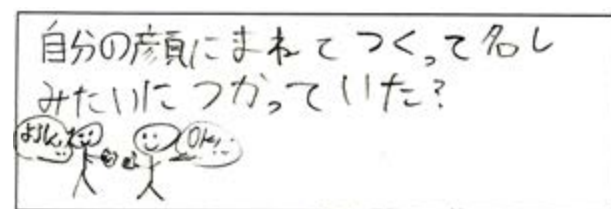 自分の顔にまねてつくって名し
みたいにつかっていた?
OK!